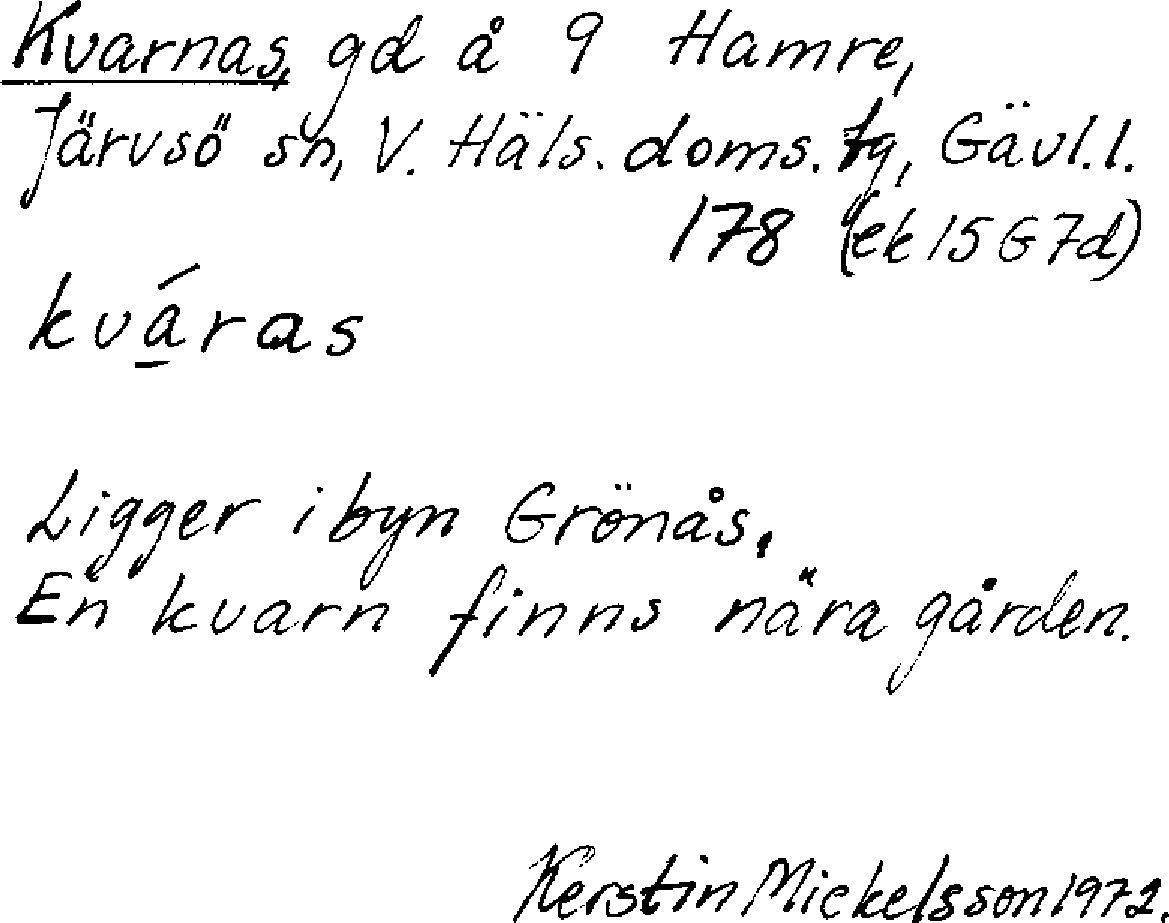 Kvarnas, gd å 9 Hamre,
Järvsö sn, V. Häls. doms. tg, Gävl. l.
178 (ek 15 G 7d)
kvá̱ras
Ligger i byn Grönås.
En kvarn finns nära gården.
Kerstin Mickelsson 1972.